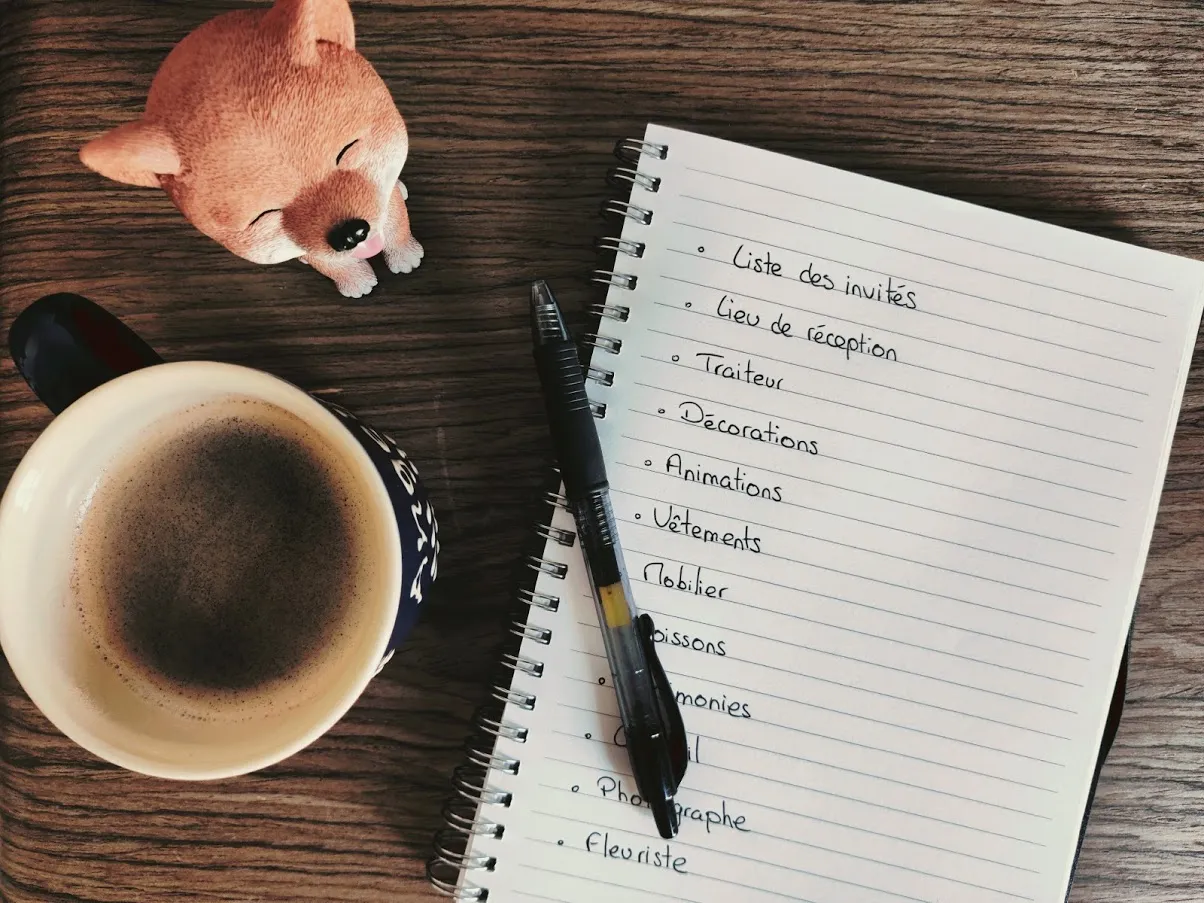 Liste des invités
Lieu de réception
Traiteur
Décorations
Animations
Vêtements
Mobilier
oissons
monies
il
Pho graphe
Fleuriste